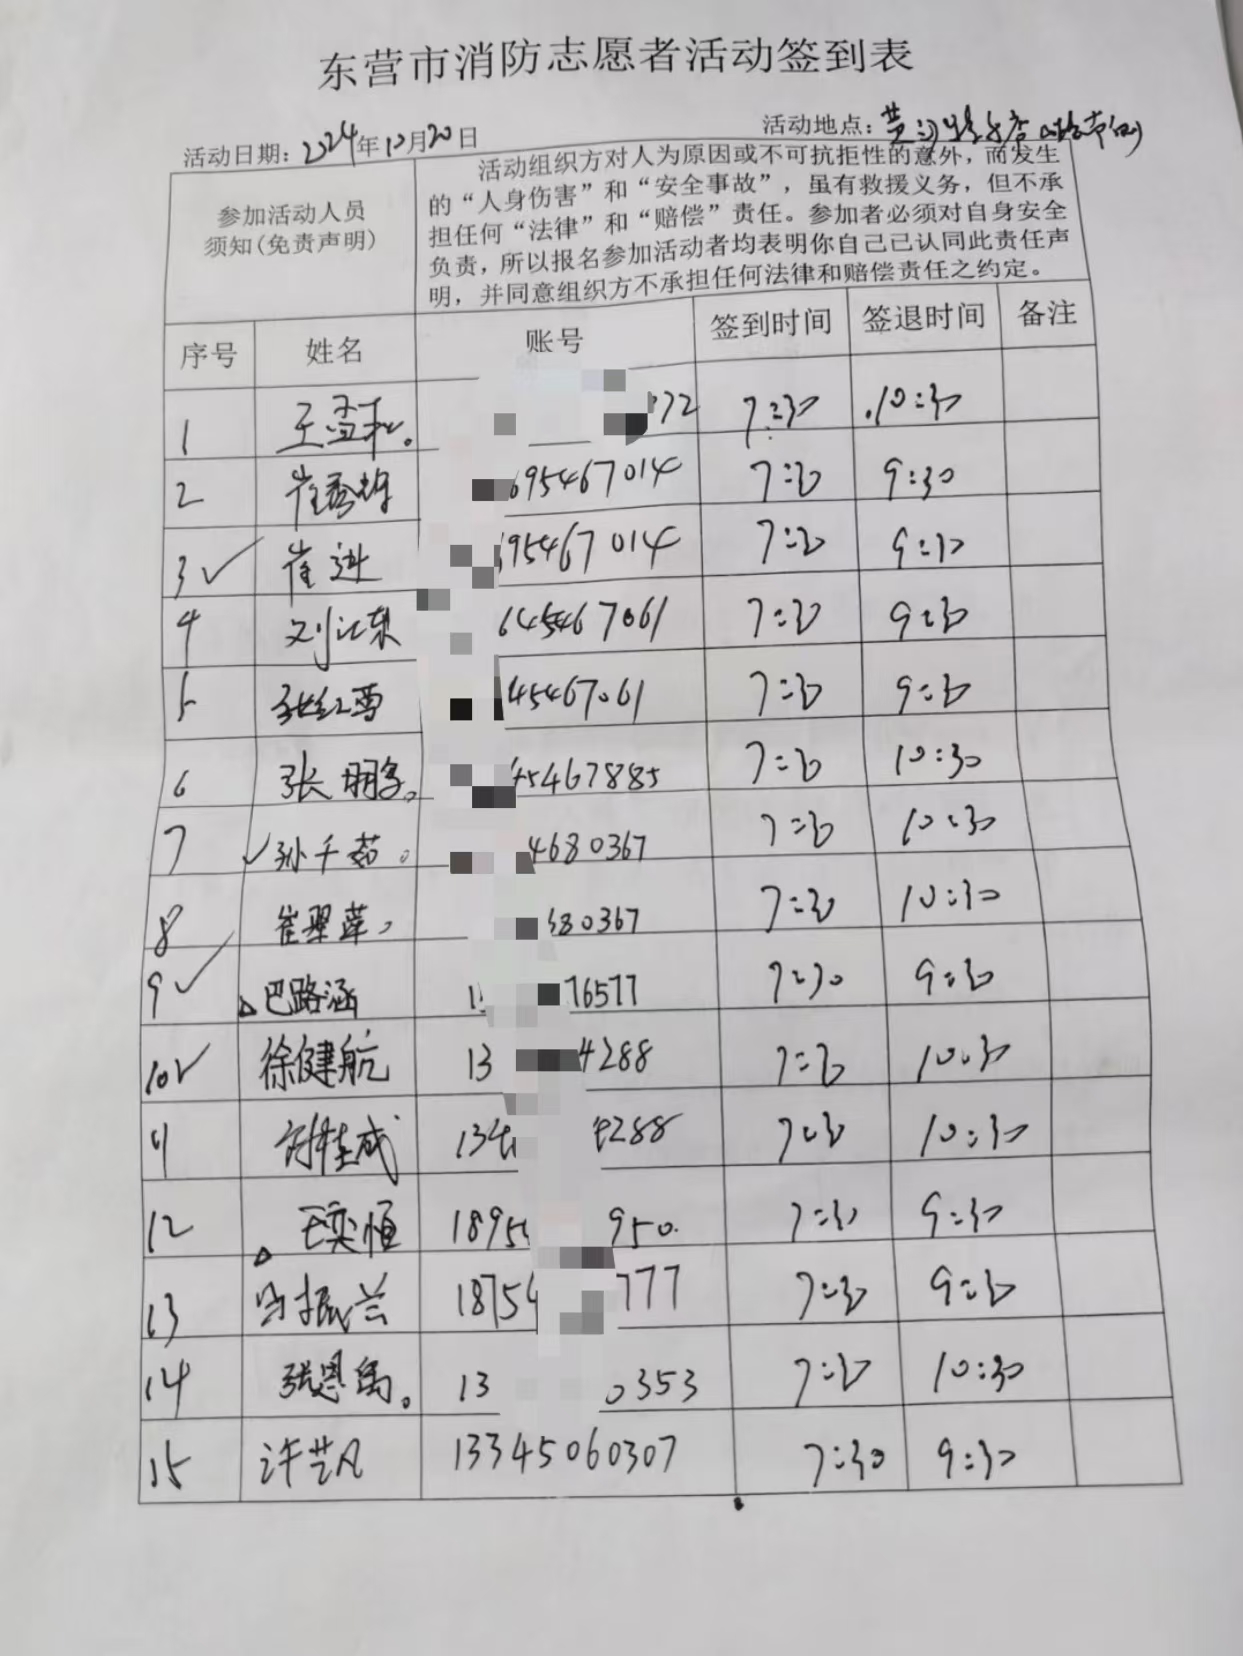 东营市消防志愿者活动签到表
活动日期：2024年10月20日 活动地点：
参加活动人员
须知(免责声明)
活动组织方对人为原因或不可抗拒性的意外，而发生
的“人身伤害”和“安全事故”，虽有救援义务，但不承
担任何“法律”和“赔偿”责任。参加者必须对自身安全
负责，所以报名参加活动者均表明你自己已认同此责任声
明，并同意组织方不承担任何法律和赔偿责任之约定。
序号 姓名 账号 签到时间 签退时间 备注
1 72 7:30 10:30
2 695467014 7:30 9:30
3 崔进 95467014 7:30 9:30
4 刘江东 645467061 7:30 9:30
5 45467061 7:30 9:30
6 45467885 7:30 10:30
7 孙千茹 4680367 7:30 10:30
8 崔翠萍 680367 7:30 10:30
9 巴路涵 76577 7:30 9:30
10 徐健航 13 4288 7:30 10:30
11 134 4288 7:30 10:30
12 王奕恒 1895 950 7:30 9:30
13 18754 777 7:30 9:30
14 13 0353 7:30 10:30
15 许艺凡 13345060307 7:30 9:30